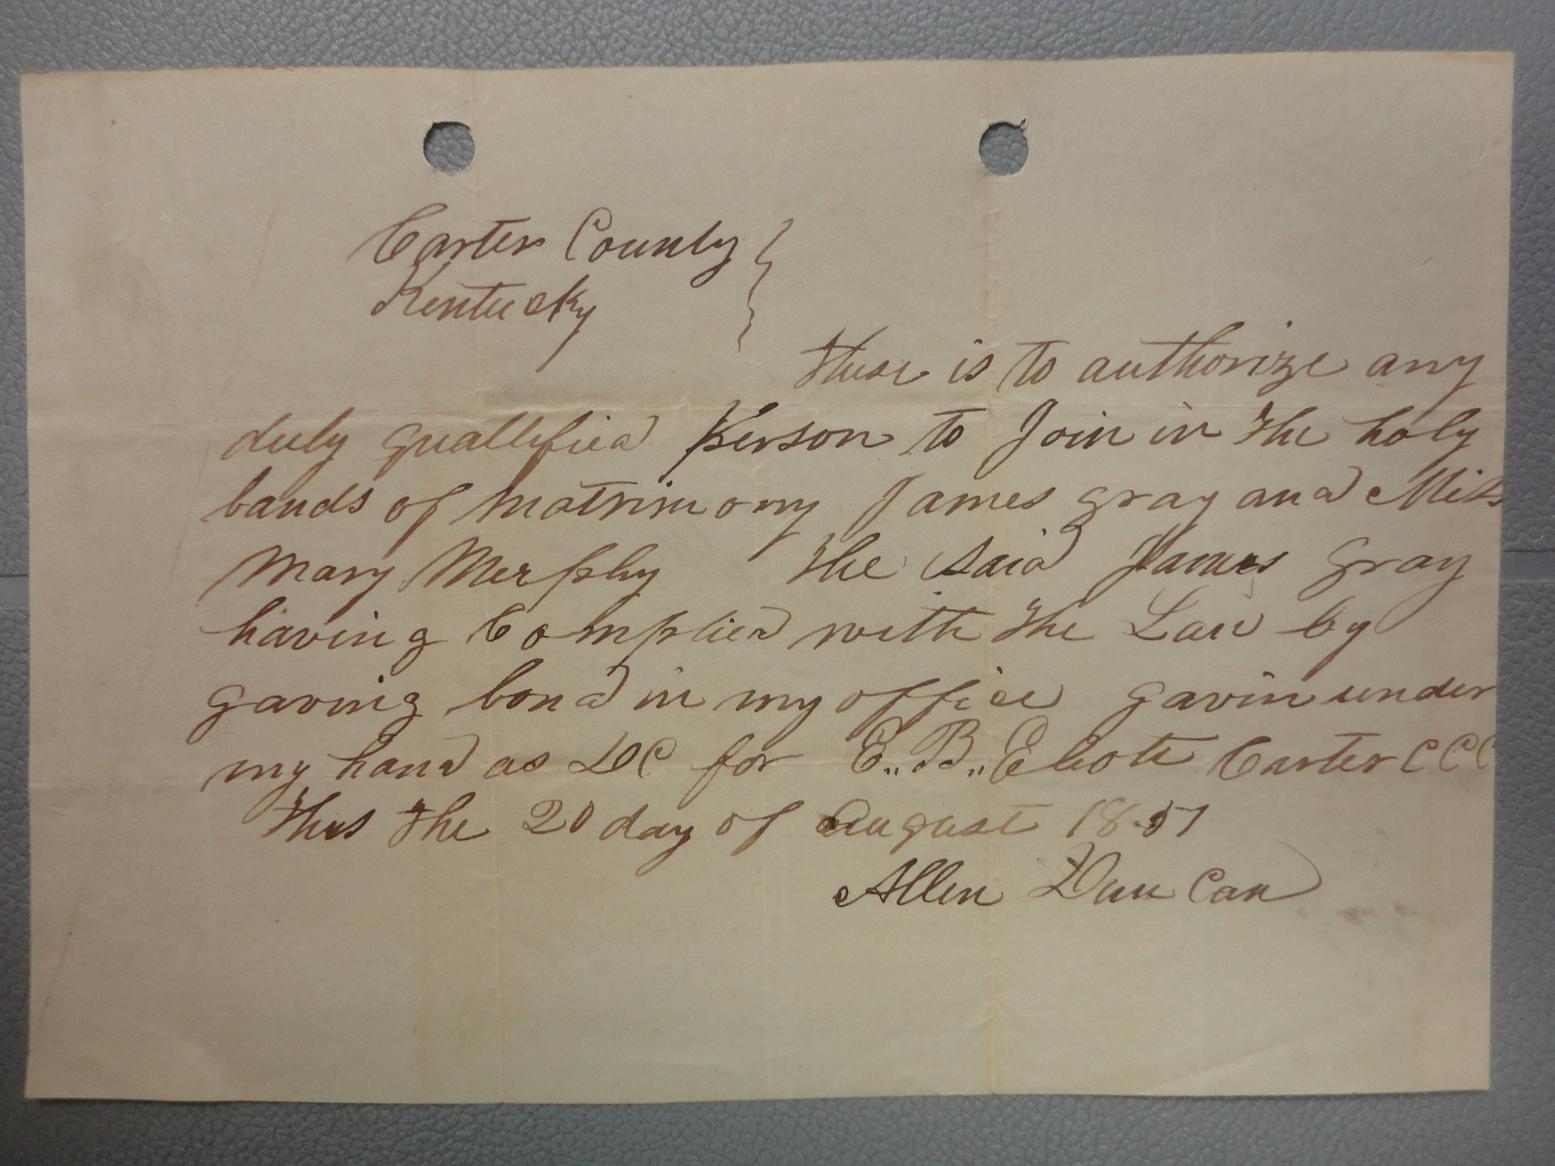 Carter County }
Kentucky }
these is to authorize any
duly quallified person to Join in the holy
bands of matrimony James gray and Miss
Mary Merphy the said James Gray
having Complied with the Law by
gaving bond in my office gavin under
my hand as DC for E.. B.. Eliott Carter C C C
this the 20 day of August 1857
Allen Duncan